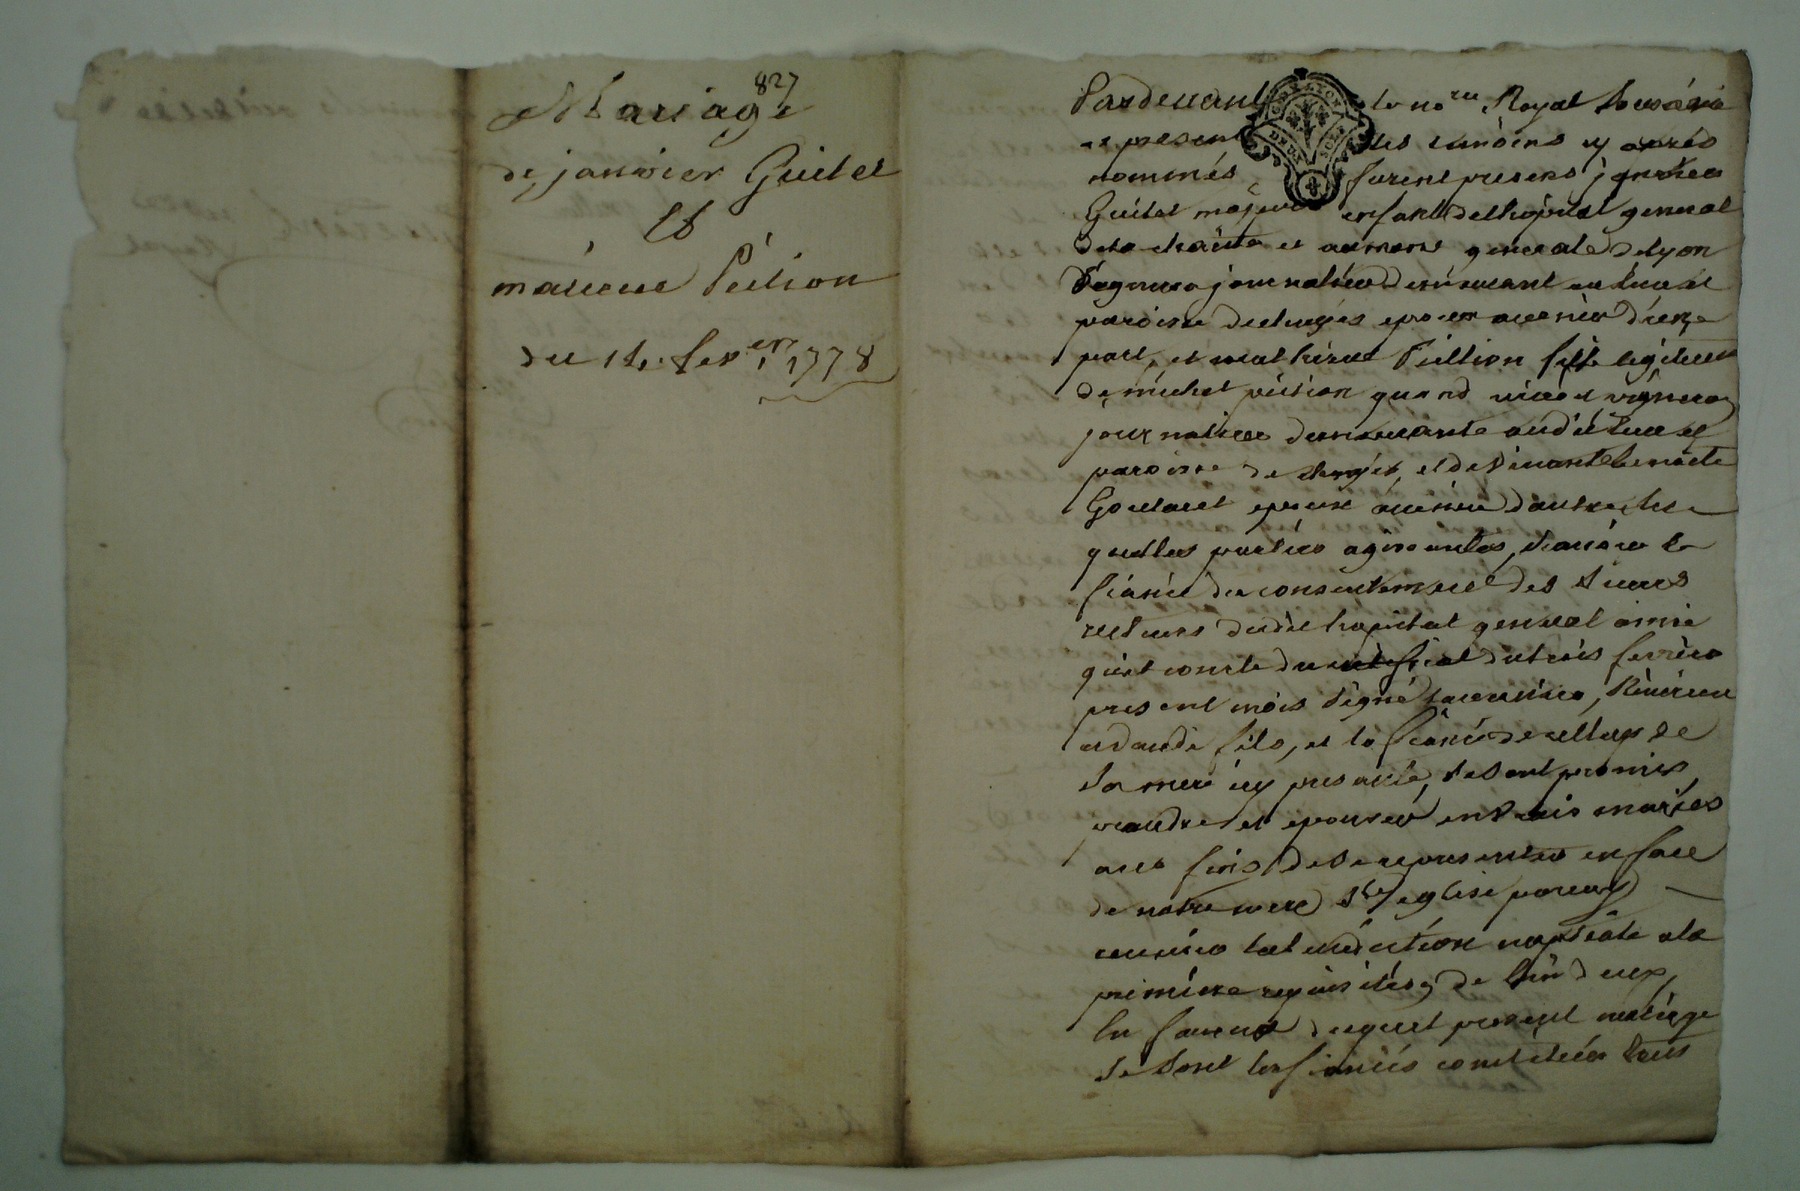 827
Mariage
de janvier Guitel
et
Pition
du 14 fevrier 1778
Pardevant le no.re Royal sousigné
et presents les temoins cy après
nommés furent presens janvier
Guitel majeur enfant del hopital general
dela charité et aumone generale de lyon
vigneron journalier demeurant au lieu et
paroisse de epoux avenir d'une
part, et Pition fille legitime
de michel pition quand vivoit vigneron
journalier demeurante audit lieu et
paroisse de et de vivante benoite
epouse avenir d'autre, les
quelles parties agissantes, scavoir le
fiancé du consentement des sieurs
recteurs dudit hopital general ainsi
qu'il conste du du trois fevrier
present mois signé
fils, et la fiancée de celluy de
sa mere icy presente, se sont promis
prendre et epouser en vrais mariés
aux fins de se representer en face
de notre mere Ste eglise pour y
recevoir la benediction nuptiale a la
premiere requisition de l'un d'eux,
en faveur duquel present mariage
se sont les fiancés constitués tous